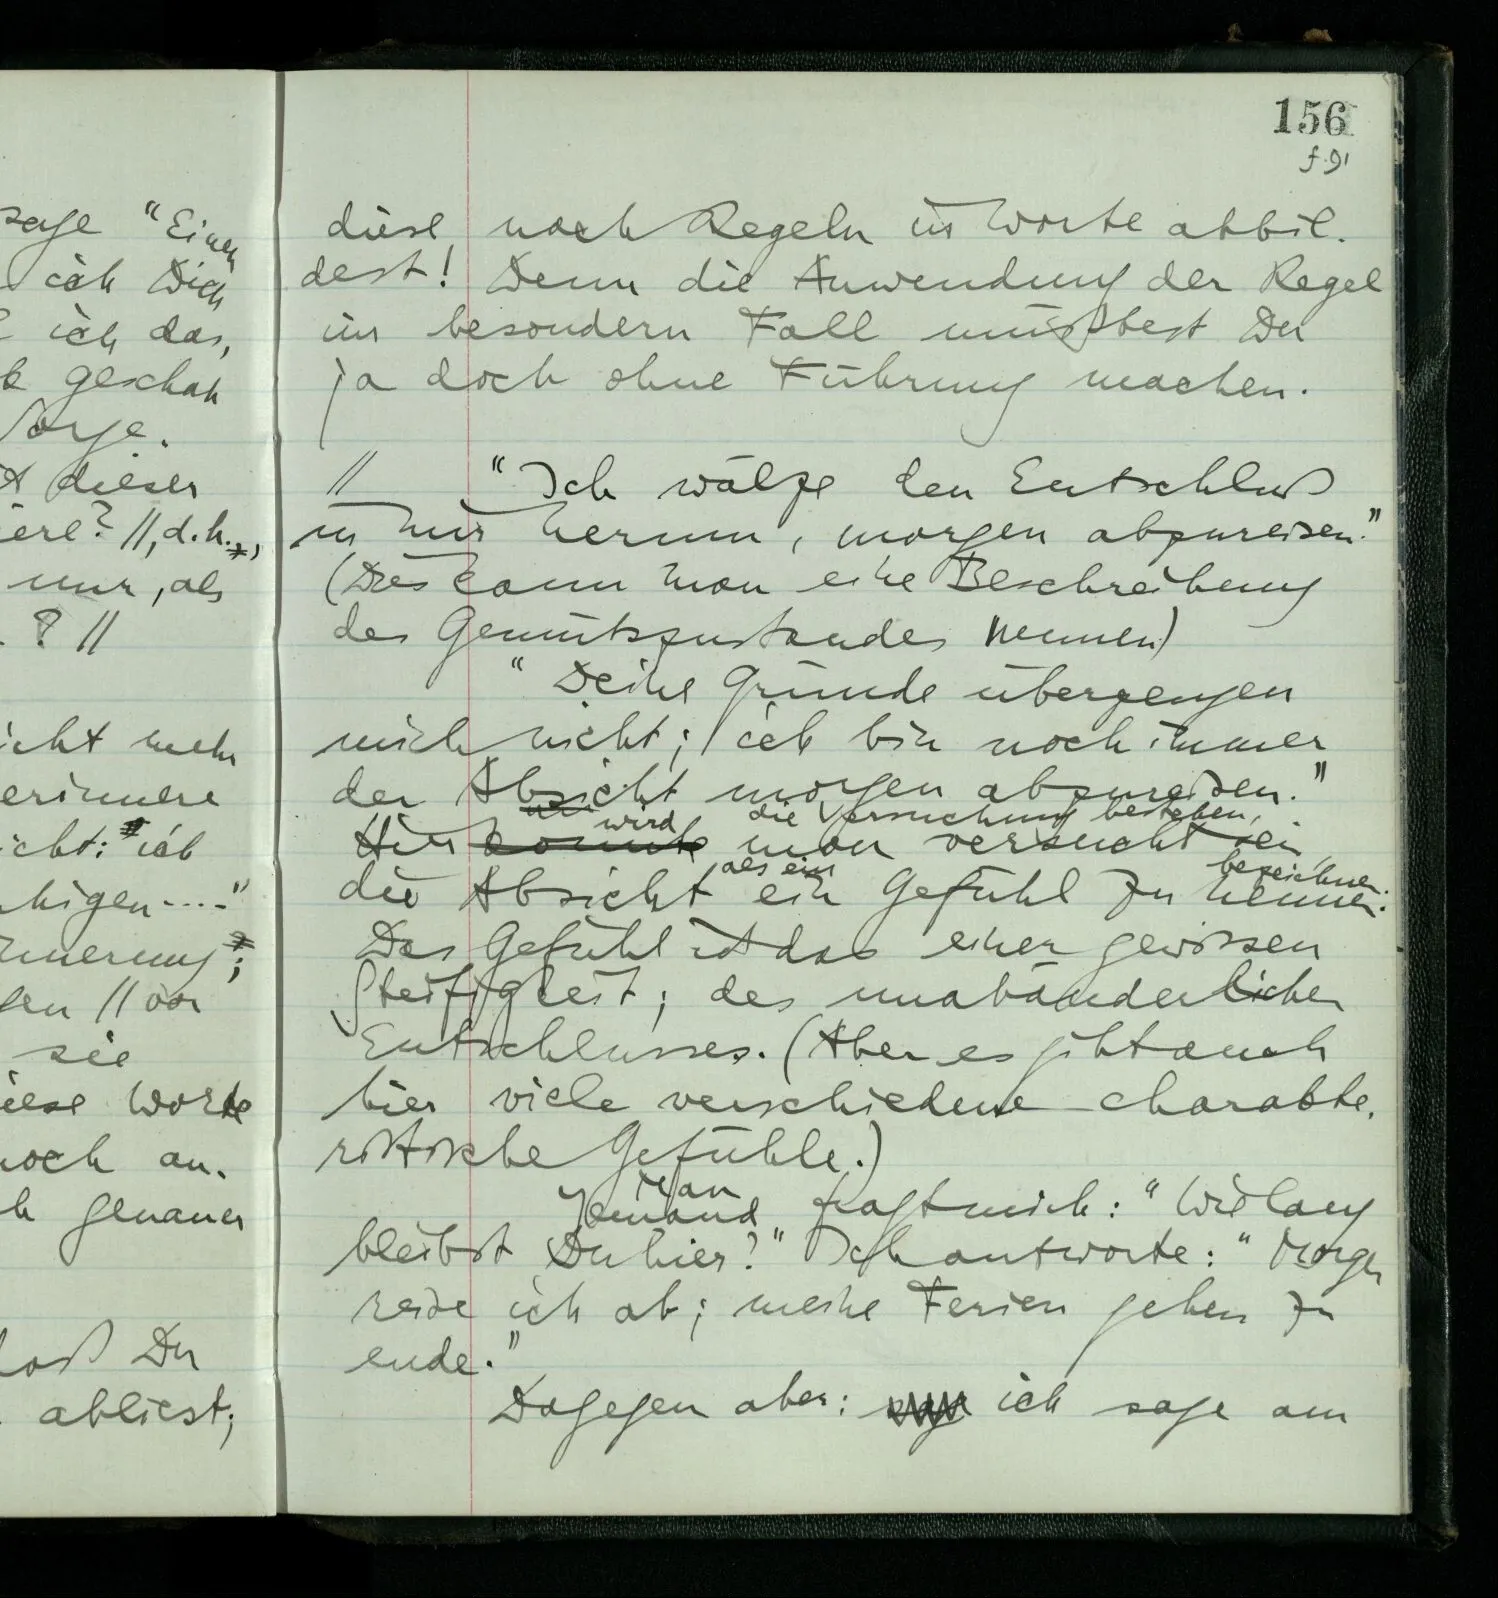 156
f.91
sage "Einen
ich Dich
ich das,
geschah
Sorge.
dieser
iere? //, d.h.,
nur, als
? //
icht mehr
erinnere
icht: ich
higen ....."
innerung;
fen // vor
sie
iese Worte
noch an.
genauer
daß Du
abliest;
diese nach Regeln in Worte abbil-
dest! Denn die Anwendung der Regel
im besondern Fall müßtest Du
ja doch ohne Führung machen.
// "Ich wälze den Entschluß
in mir herum, morgen abzureisen."
(Dies kann man eine Beschreibung
des Gemütszustandes nennen)
"Deine Gründe überzeugen
mich nicht; ich bin noch immer
der Absicht morgen abzureisen."
wird die Versuchung bestehen,
Hier könnte man versucht sein
als ein bezeichnen:
die Absicht ein Gefühl zu nennen:
Das Gefühl ist das einer gewissen
Steifigkeit; des unabänderlichen
Entschlusses. (Aber es gibt auch
hier viele verschiedene charakte-
ristische Gefühle.)
Man
Jemand fragt mich: "Wie lang
bleibst Du hier?" Ich antworte: "Morgen
reise ich ab; meine Ferien gehen zu
ende."
Dagegen aber: ich sage am